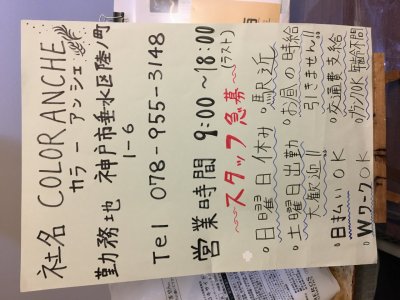 社名 COLOR ANCHE
カラー アンシェ
勤務地 神戸市垂水区陸ノ町
1-6
Tel 078-955-3148
営業時間 9:00～18:00
(ラスト)
～スタッフ急募～
日曜日休み
駅近
土曜日出勤
大歓迎!!
お昼の時給
引きません!!
日払いOK
交通費支給
WワークOK